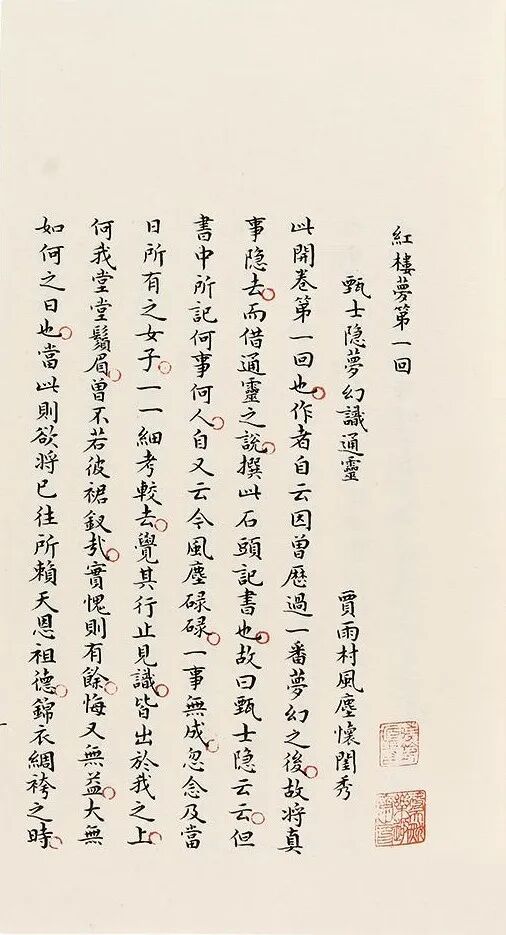 紅樓夢第一回
甄士隐夢幻識通靈 賈雨村風塵懷閨秀
此開卷第一回也。作者自云因曾歷過一番夢幻之後。故將真
事隐去。而借通靈之說。撰此石頭記書也。故曰甄士隐云云。但
書中所記何事何人。自又云今風塵碌碌。一事無成。忽念及當
日所有之女子。一一細考較去。覺其行止見識。皆出於我之上。
何我堂堂鬚眉。曾不若彼裙釵哉。實愧則有餘。悔又無益。大無
如何之日也。當此則欲將已往所賴天恩祖德。錦衣綢袴之時。